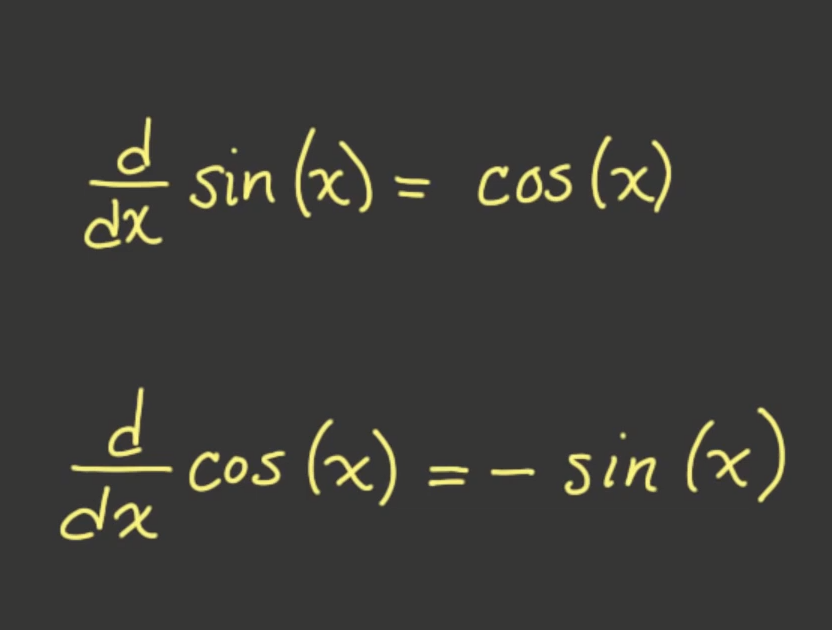 d/dx sin(x) = cos(x)
d/dx cos(x) = - sin(x)